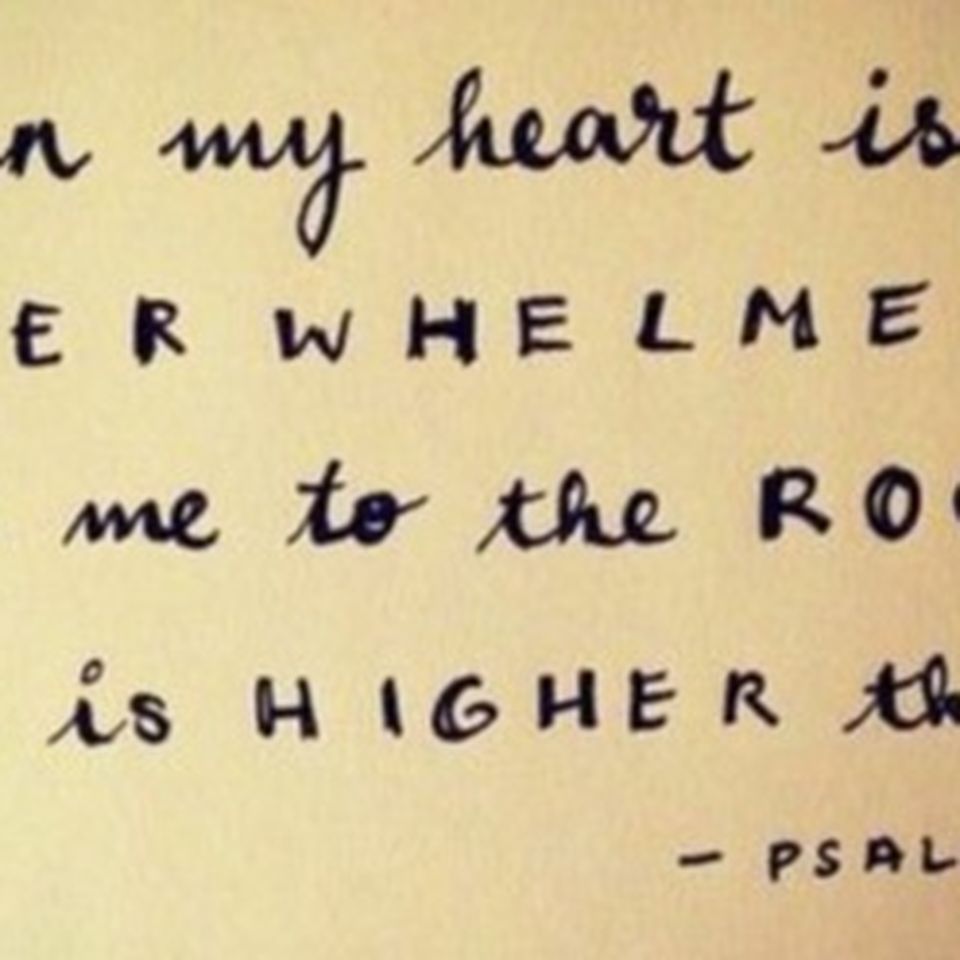 n my heart is
ER WHELME
me to the ROC
is HIGHER th
- PSAL